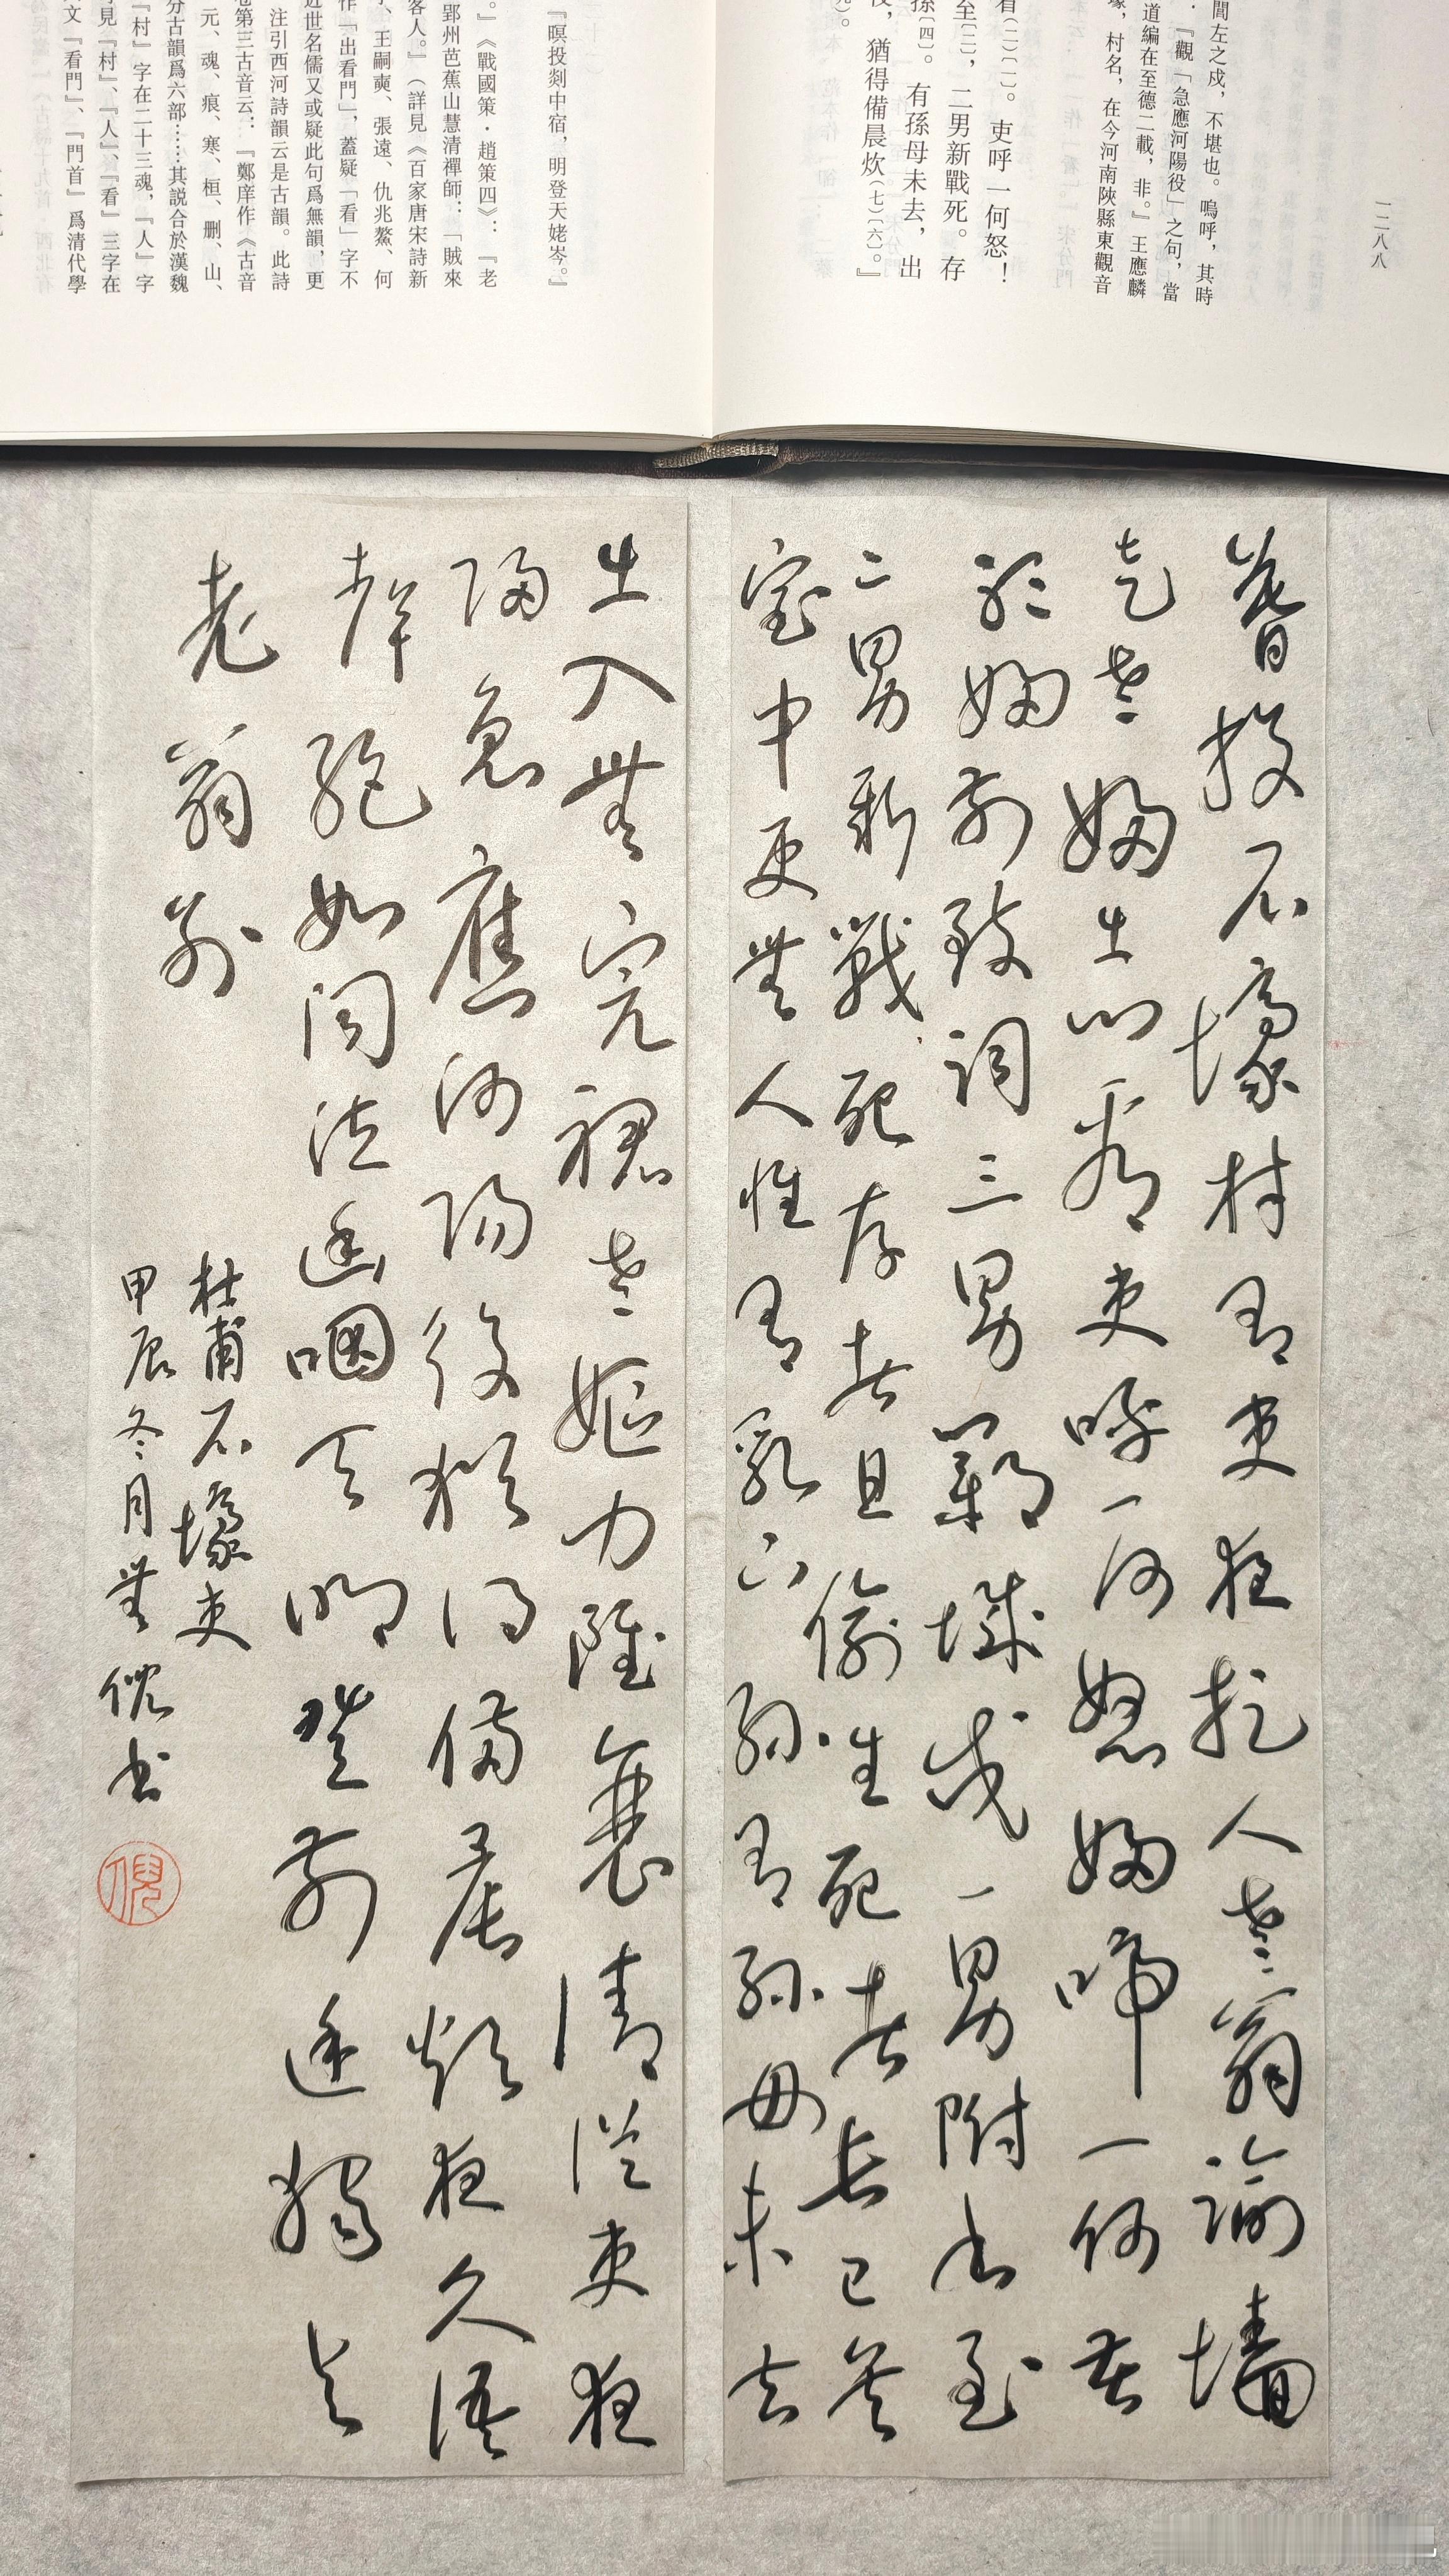 一二八八
閭左之戍，不堪也。嗚呼，其時
：『觀「急應河陽役」之句，當
道編在至德二載，非。』王應麟
壕，村名，在今河南陝縣東觀音
看〔二〕〔一〕。吏呼一何怒！
至〔二〕，二男新戰死。存
孫〔四〕。有孫母未去，出
役，猶得備晨炊〔七〕〔六〕。』
『暝投剡中宿，明登天姥岑。』
。』《戰國策·趙策四》：『老
郢州芭蕉山慧清禪師：『賊來
客人。』（詳見《百家唐宋詩新
、王嗣奭、張遠、仇兆鰲、何
作「出看門」，蓋疑「看」字不
近世名儒又或疑此句爲無韻，更
注引西河詩韻云是古韻。此詩
卷第三古音云：『鄭庠作《古音
元、魂、痕、寒、桓、刪、山、
分古韻爲六部……其説合於漢魏
『村』字在二十三魂，『人』字
見『村』、『人』、『看』三字在
文『看門』、『門首』爲清代學
暮投石壕村有吏夜捉人老翁踰墻
走老婦出門看吏呼一何怒婦啼一何苦
聽婦前致詞三男鄴城戍一男附書至
二男新戰死存者且偷生死者長已矣
室中更無人惟有乳下孫有孫母未去
出入無完裙老嫗力雖衰請從吏夜
歸急應河陽役猶得備晨炊夜久語
聲絕如聞泣幽咽天明登前途獨與
老翁別
杜甫石壕吏
甲辰冬月無倪書
倪